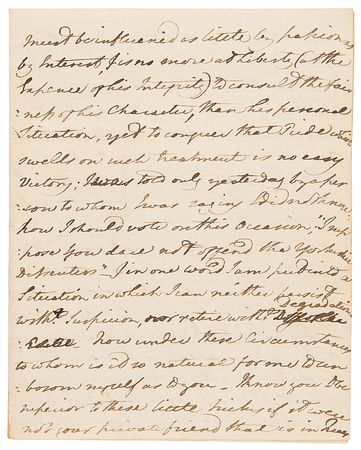 must be influenced as little by passion as
by Interest, & is no more at liberty (at the
Expence of his Integrity) to consult the fair
ness of his Character, than his personal
Situation, yet to conquer that Pride which
swells on such treatment is no easy
Victory; I was told only yesterday by a per
son to whom I was saying I did not know
how I should vote on this Occasion, "I sup
pose you dare not offend the Yorkshire
Dissenters" - In one word I am pushed into a
Situation in which I can neither persist
witht. Suspicion, nor retire witht. degradation
now under these Circumstances
to whom is it so natural for me to un
bosom myself as to you - I know you to be
superior to these little tricks & if it were
not your private friend that is in